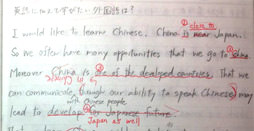 英語に加えて学びたい外国語は?
① close to
I would like to learn Chinese. China is near Japan.
So we often have many opportunities that we go to ② China
Moreover China is ③ one of the developed countries. That we
can communicate through our ability to speak Chinese) may
with Chinese people
lead to develop for Japanese future.
Japan as well